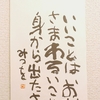 いいことは お
さまわるいこ
身から出たさ
みつを